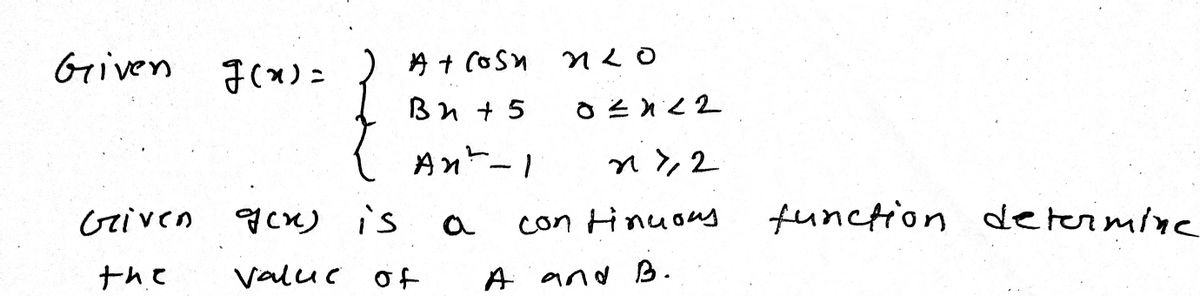 Given g(x) = { A + cosx x < 0
Bx + 5 0 ≤ x < 2
Ax² - 1 x ≥ 2
Given g(x) is a continuous function determine
the value of A and B.